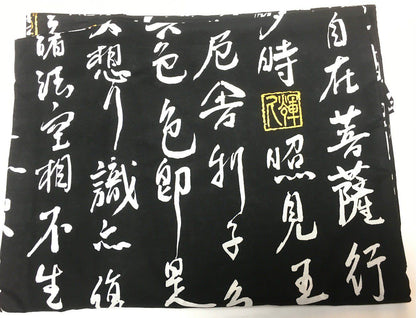 自在菩薩行
多時照見五
厄舍利子色
空色色即是
受想行識亦復
諸法空相不生